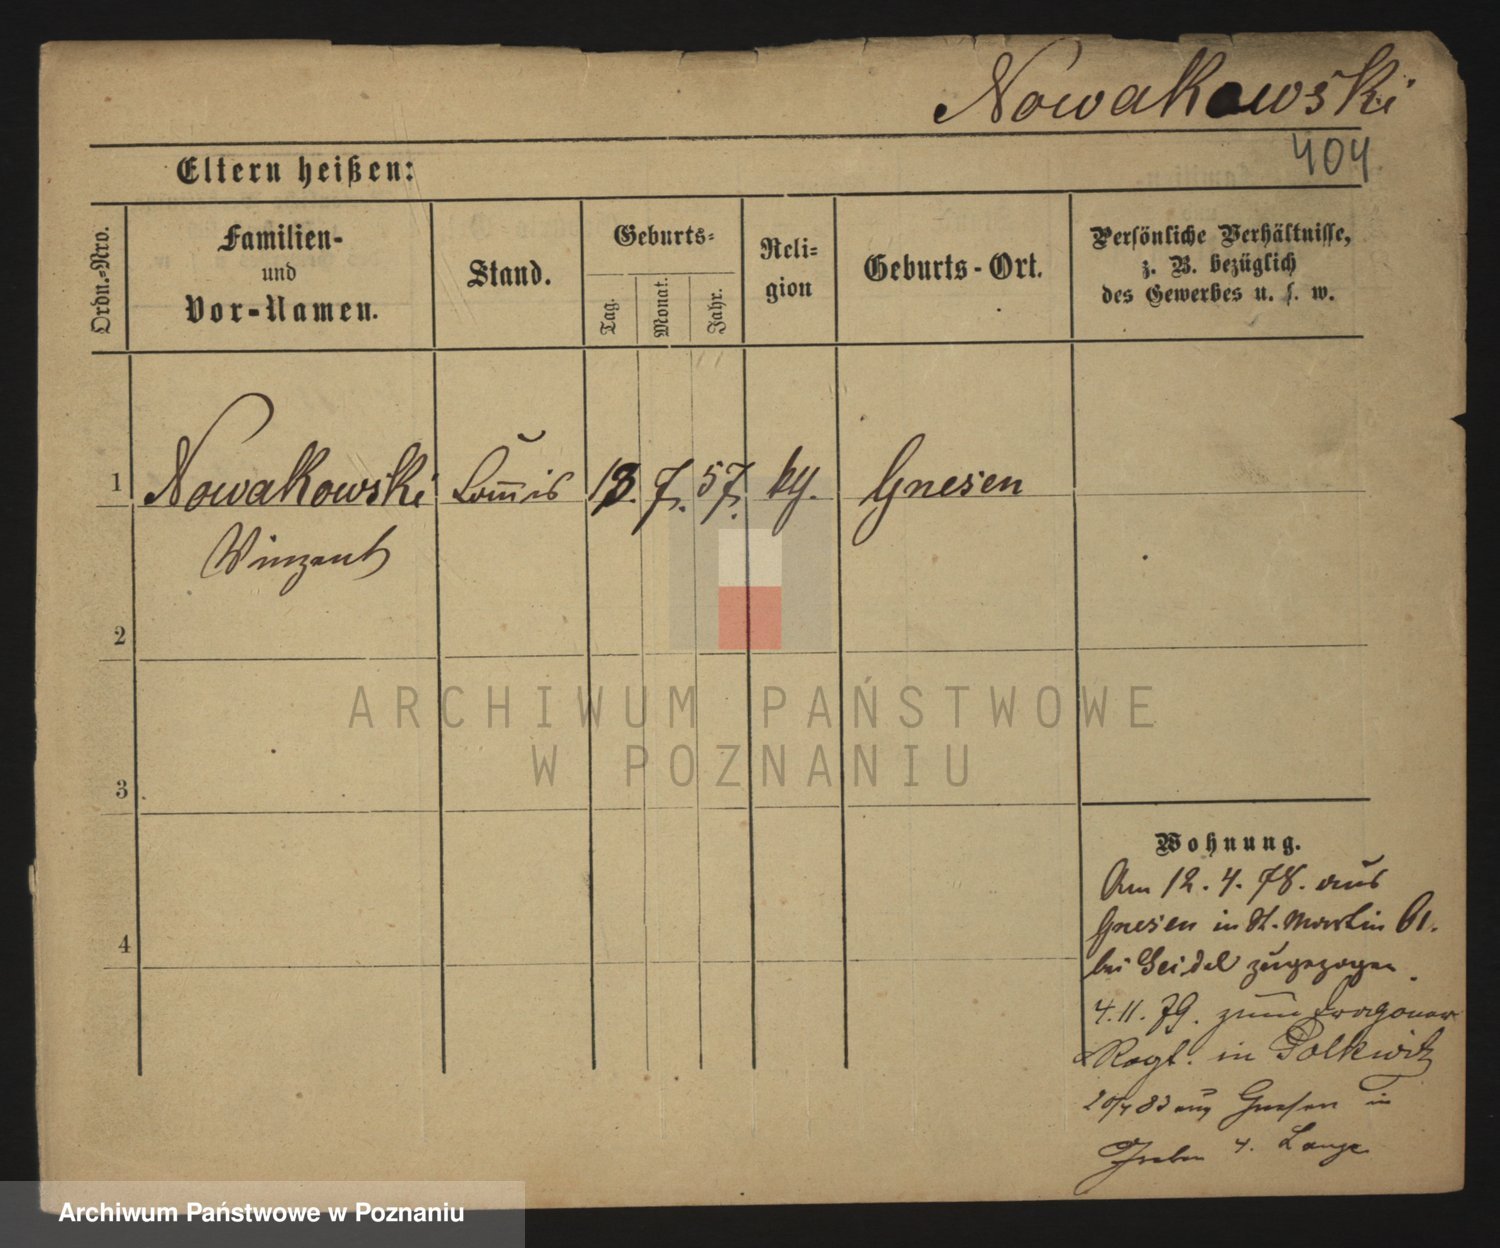 Nowakowski
404
Eltern heißen:
Ordn.-Nro.
Familien-
und
Vor-Namen.
Stand.
Geburts-
Tag.
Monat.
Jahr.
Reli-
gion
Geburts-Ort.
Persönliche Verhältnisse,
z. B. bezüglich
des Gewerbes u. s. w.
1 Nowakowski Commis 13. 7. 57. kg. Gnesen
Winzent
2
3
4
Wohnung.
Am 12. 4. 78. aus
Gnesen in St. Martin 61.
bei Seidel zugezogen.
4.11.79. zum Dragoner
Regt. in Polkwitz
83 aus Gnesen in
4. Lange
ARCHIWUM PAŃSTWOWE
W POZNANIU
Archiwum Państwowe w Poznaniu